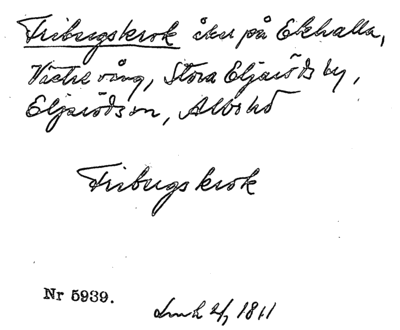 Fribugskrok åker på Ekhalla,
Västre vång, Stora Eljaröds by,
Eljaröds sn, Albo hd
Fribugskrok
Nr 5939.
2/7 1811